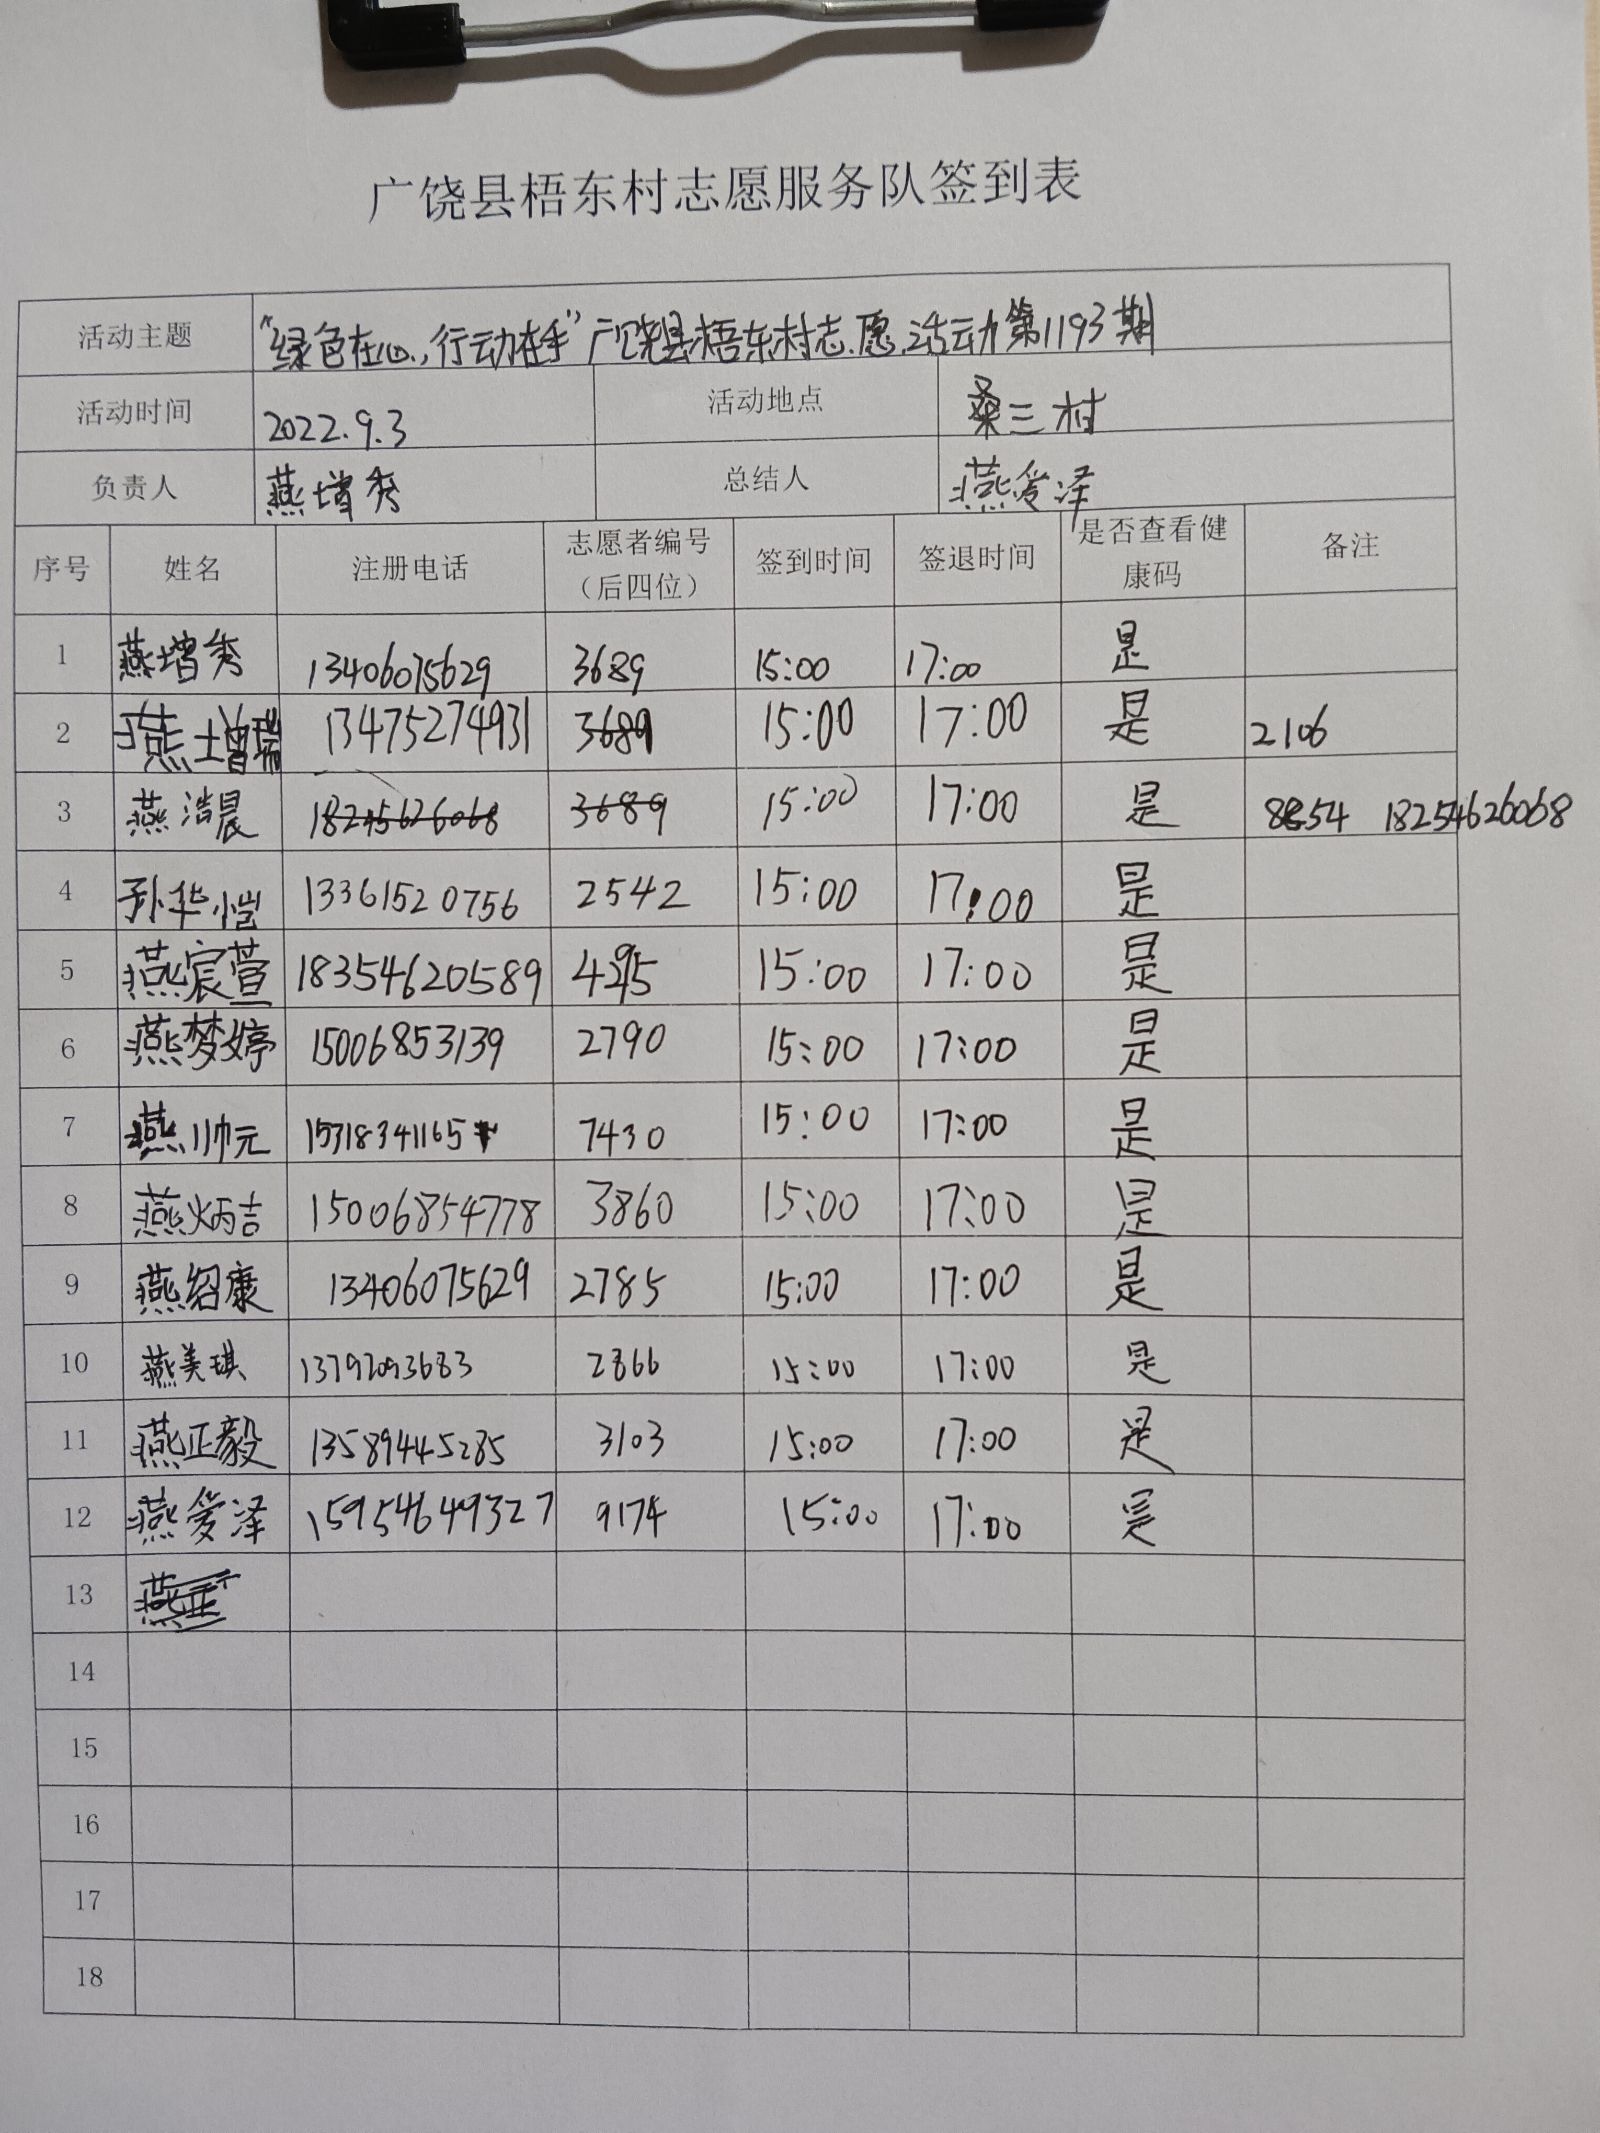 广饶县梧东村志愿服务队签到表
活动主题 “绿色在心,行动在手”广饶县梧东村志愿活动第1193期
活动时间 2022.9.3 活动地点 桑三村
负责人 燕增秀 总结人 燕爱泽
序号 姓名 注册电话 志愿者编号（后四位） 签到时间 签退时间 是否查看健康码 备注
1 燕增秀 13406075629 3689 15:00 17:00 是
2 燕增瑞 13475274931 3689 15:00 17:00 是 2106
3 燕浩晨 3689 15:00 17:00 是 8654 18254626068
4 孙华恺 13361520756 2542 15:00 17:00 是
5 燕宸萱 18354620589 15:00 17:00 是
6 燕梦婷 15006853139 2790 15:00 17:00 是
7 燕帅元 15318341165 7430 15:00 17:00 是
8 燕炳吉 15006854778 3860 15:00 17:00 是
9 燕绍康 13406075629 2785 15:00 17:00 是
10 燕美琪 13792093683 2866 15:00 17:00 是
11 燕正毅 13589445285 3103 15:00 17:00 是
12 燕爱泽 15954649327 9174 15:00 17:00 是
13 燕正
14
15
16
17
18